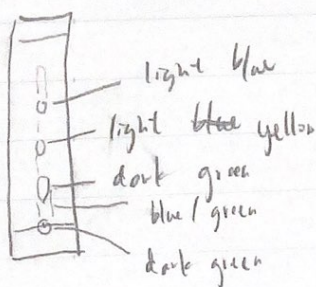 light blue
light blue yellow
dark green
blue/green
dark green